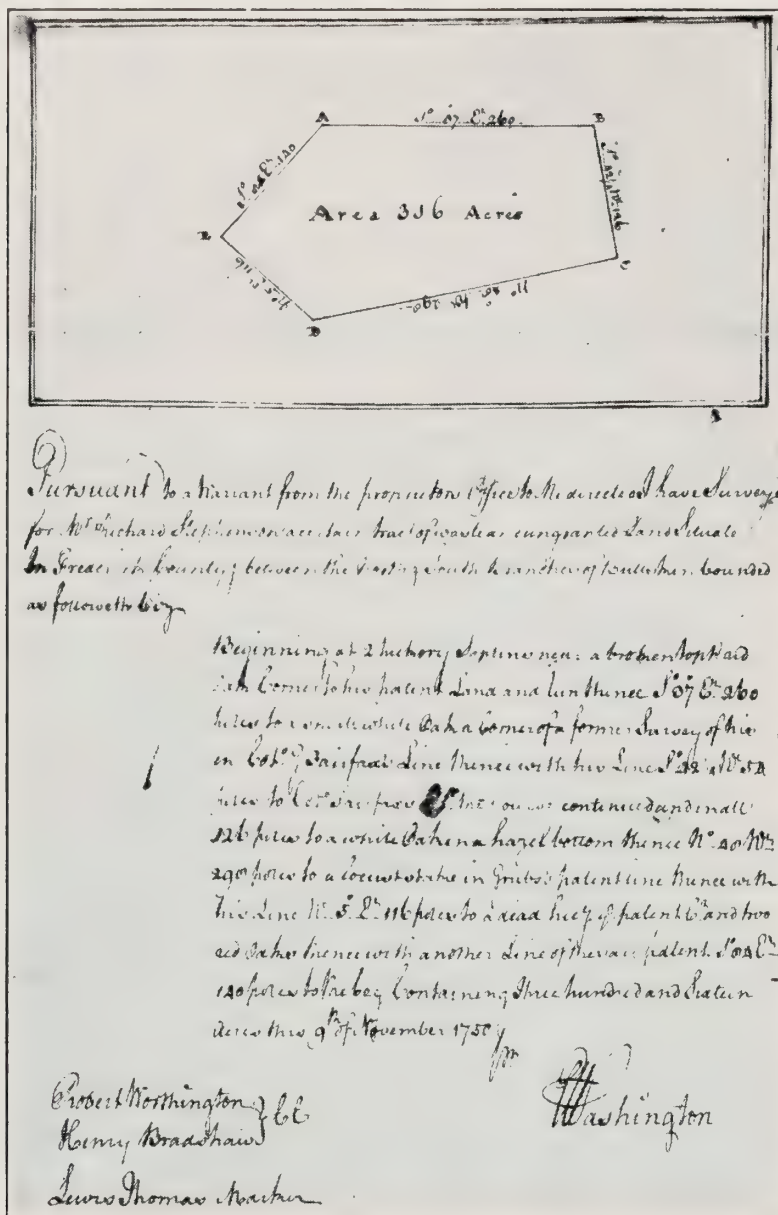 A
So 37 Et 260
B
So 42 Wt 126
C
No 40 Wt 290
D
No 5 Et 116
E
So 84 Et 140
Area 316 Acres
Pursuant to a Warrant from the proprietors Office to Me directed I have Surveyd
for Mr Richard Stephenson a certain tract of waste & ungranted Land Situate
In Frederick County between the South Branches of Bullskin bounded
as followeth beg
Beginning at 2 hickory Saplins near a broken top'd red
Oak Corner to his patent Land and run thence So 37 Et 260
poles to a white Oak a Corner of a former Survey of his
in Colo G Fairfax Line thence with his Line So 42 Wt 54
poles to Colo Fairfax continued and in all
126 poles to a white Oak in a hazel bottom thence No 40 Wt
290 poles to a Locust stake in Grubs's patent line thence with
his Line No 5 Et 116 poles to a dead patent Cr and two
red Oaks thence with another Line of the patent So 84 Et
140 poles to the beg Containing Three hundred and Sixteen
Acres this 9th of November 1750
pr
GWashington
Robert Worthington
Henry Bradshaw } CC
Lewis Thomas Marker